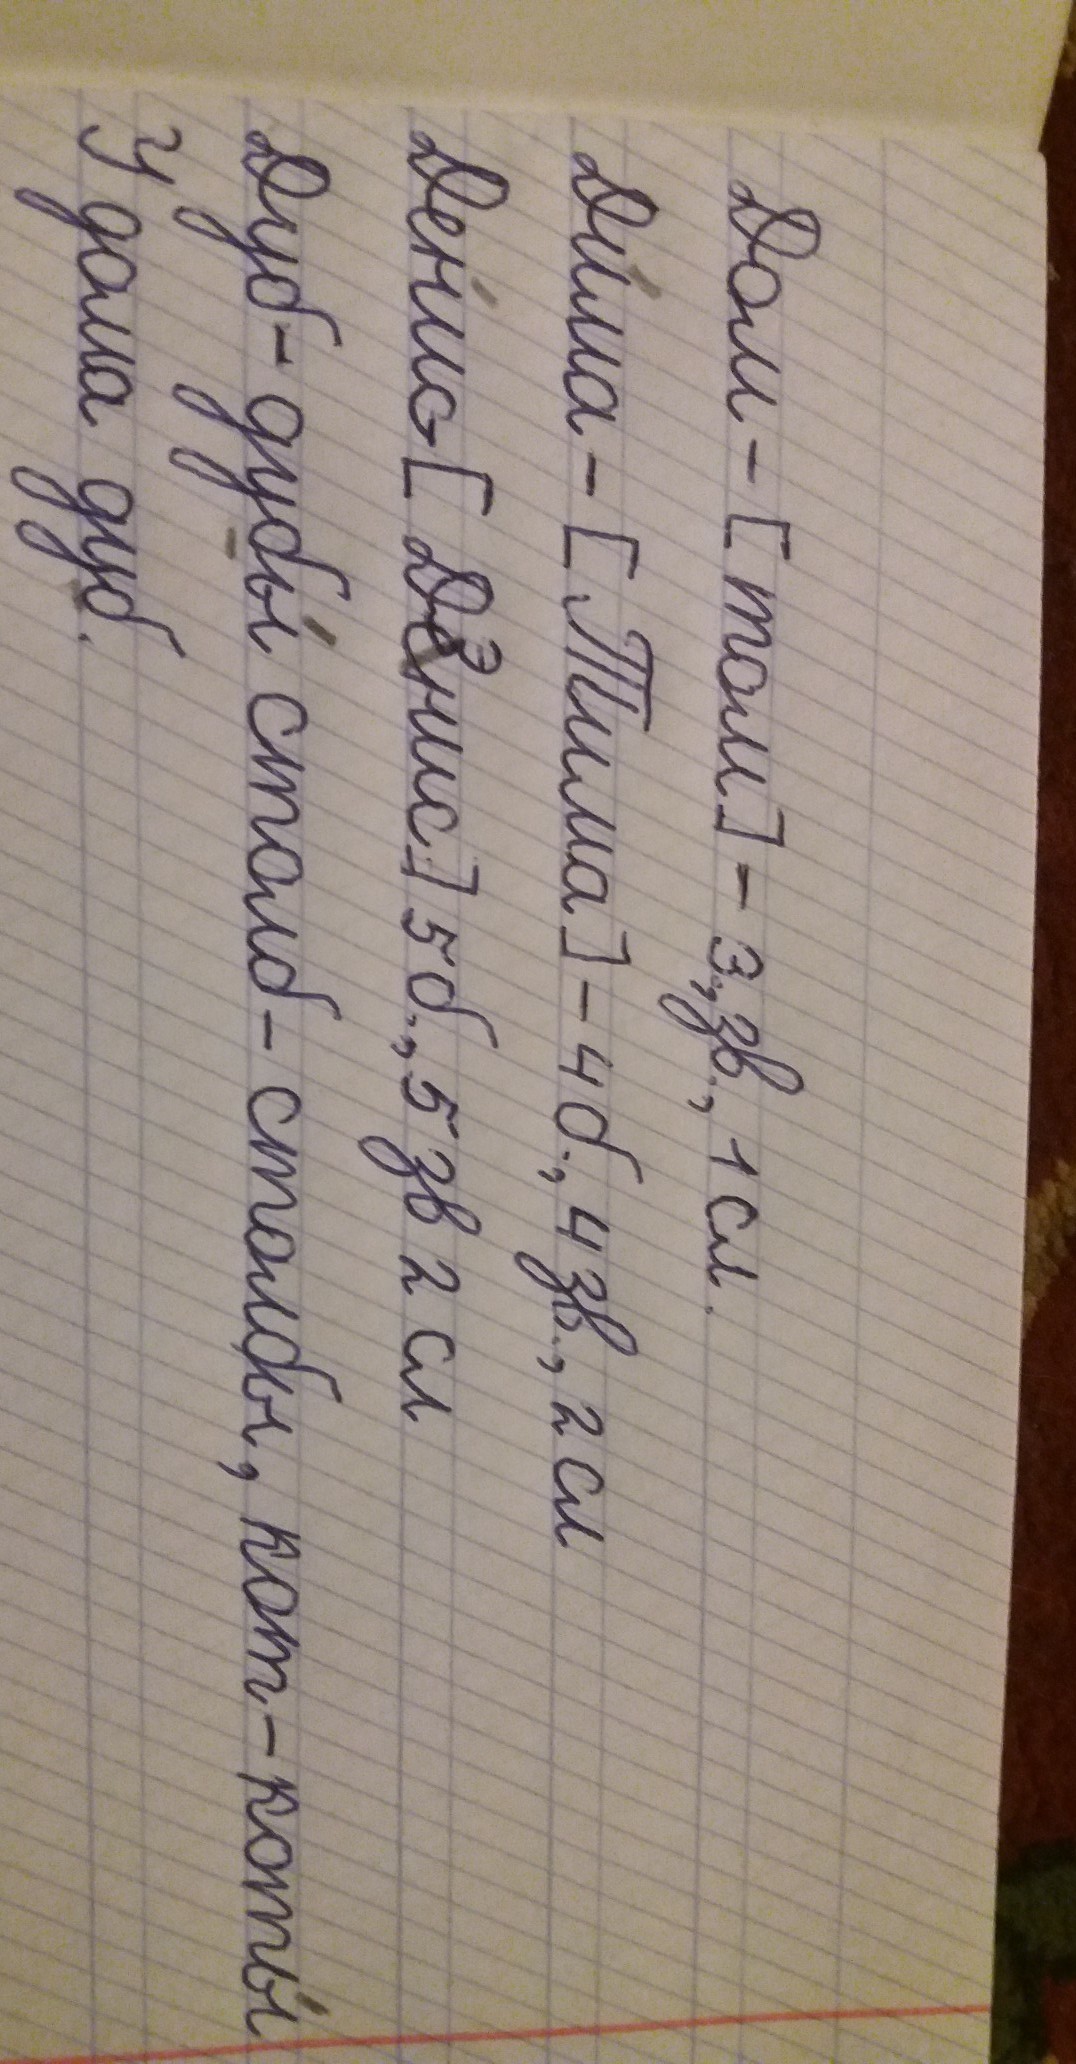 Дом - [том] - 3., зв., 1 сл.
Ди́ма - [Тима] - 4б., 4 зв., 2 сл
Дени́с - [Дэнис] 5б., 5 зв 2 сл
Дуб - дубы́ столб - столбы, кот - коты́
У дома дуб.